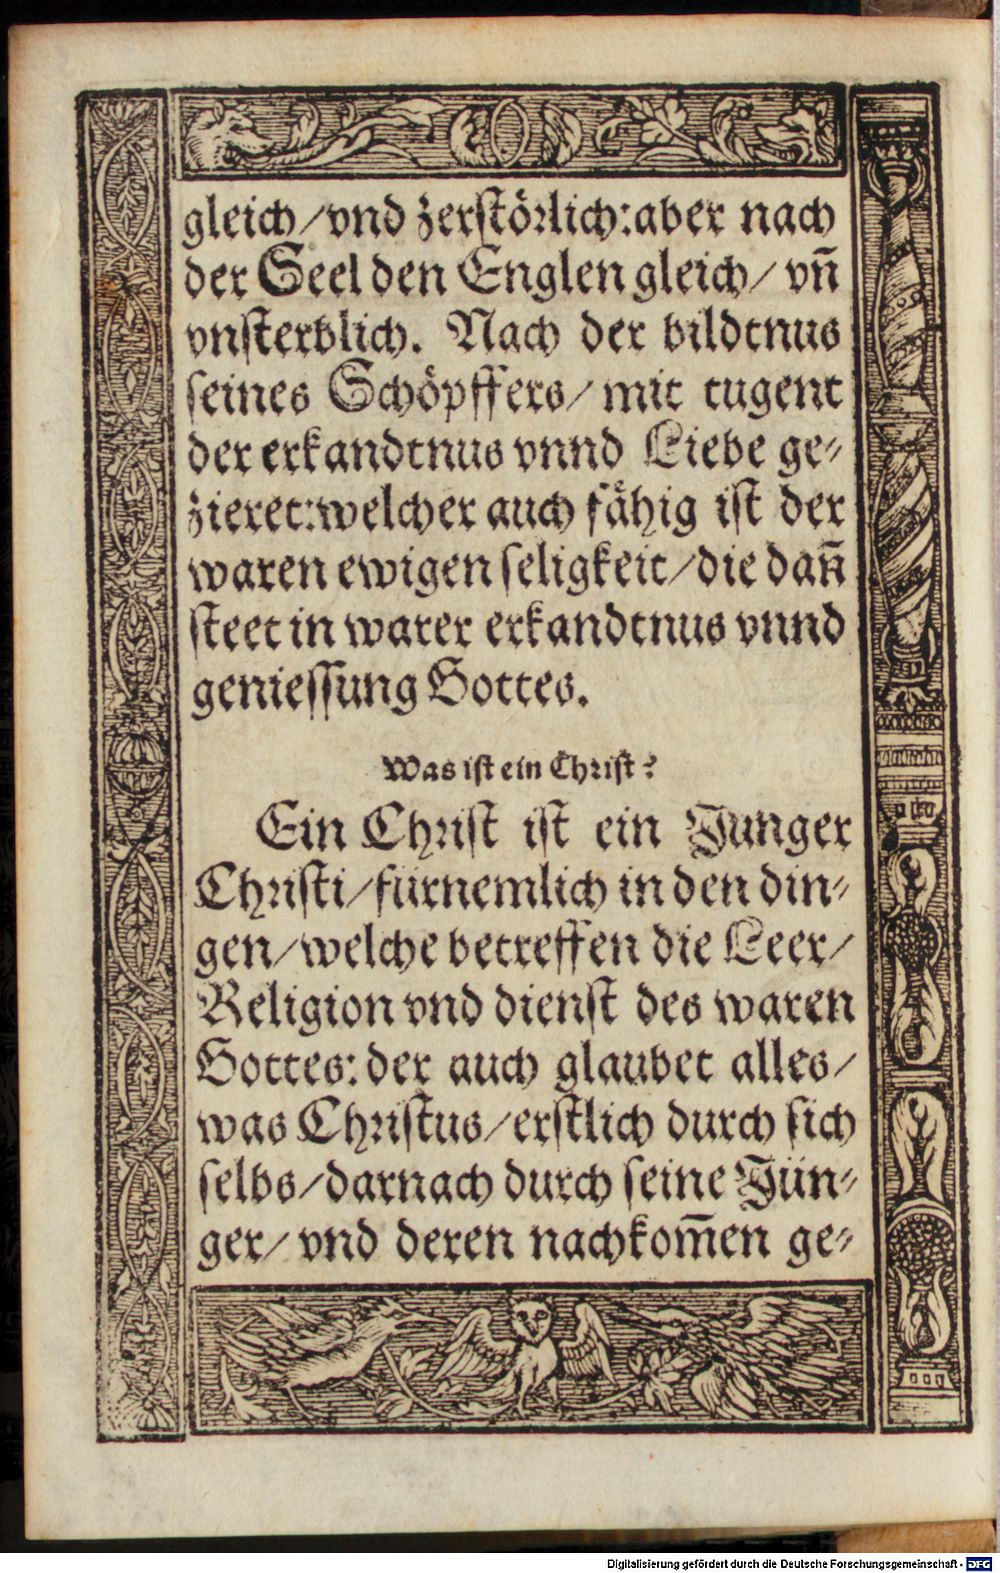 gleich/vnd zerstörlich:aber nach
der Seel den Englen gleich/ vñ
vnsterblich. Nach der bildtnus
seines Schöpffers/ mit tugent
der erkandtnus vnnd Liebe ge-
zieret:welcher auch fähig ist der
waren ewigen seligkeit/die dañ
steet in warer erkandtnus vnnd
geniessung Gottes.
Was ist ein Christ?
Ein Christ ist ein Junger
Christi/fürnemlich in den din-
gen/welche betreffen die Leer/
Religion vnd dienst des waren
Gottes: der auch glaubet alles/
was Christus/erstlich durch sich
selbs/darnach durch seine Jün-
ger/ vnd deren nachkom̃en ge-
Digitalisierung gefördert durch die Deutsche Forschungsgemeinschaft - DFG